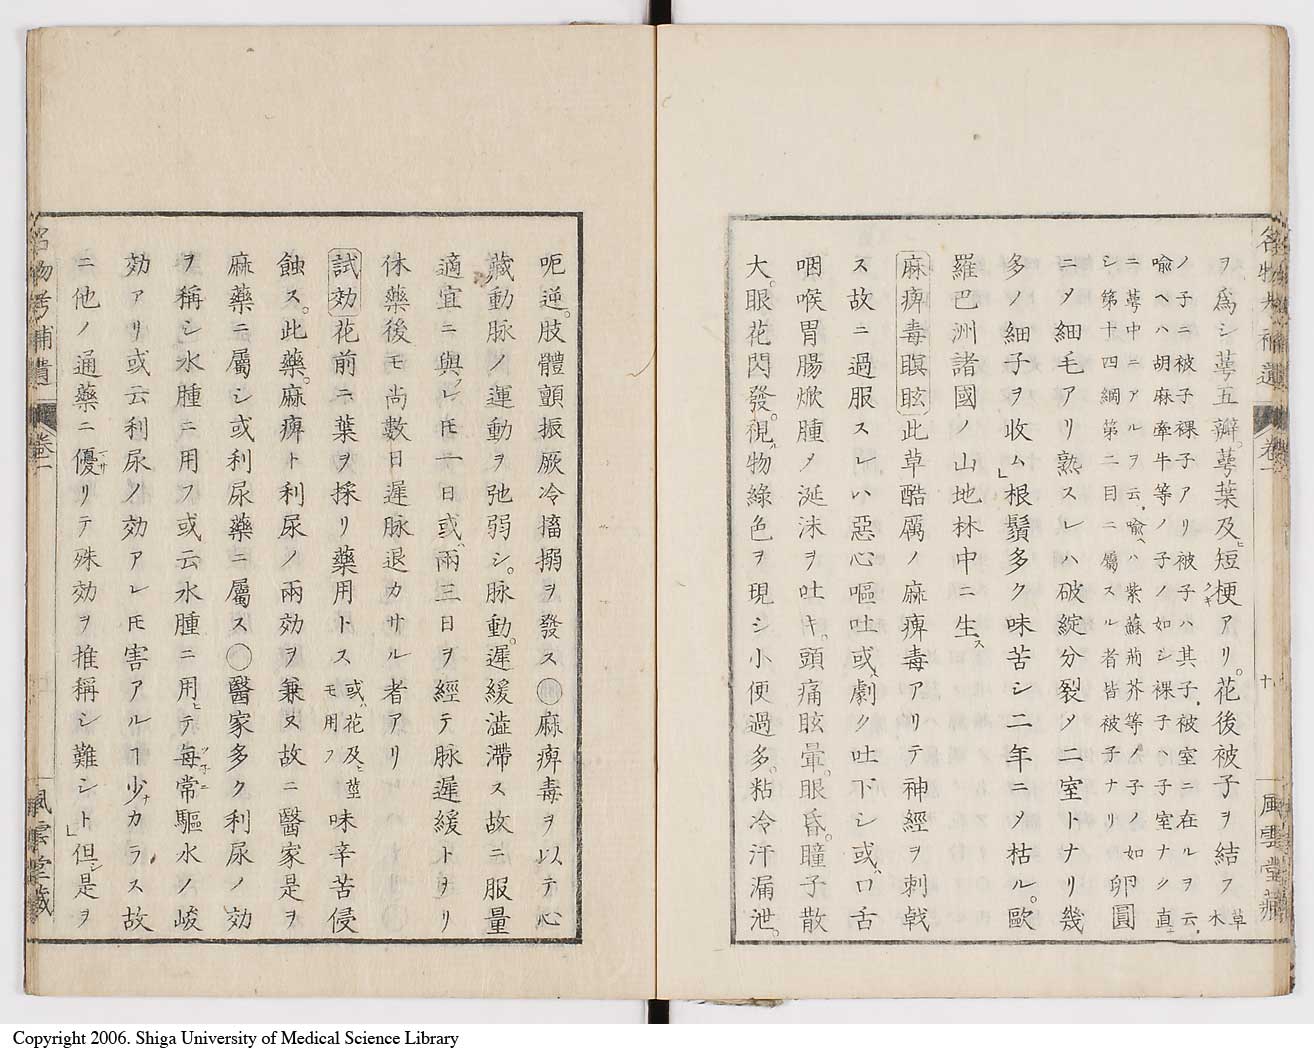 名物考補遺 卷一 十 風雲堂藏
ヲ爲シ萼五瓣萼葉及ヒ短梗クキアリ。花後被子ヲ結フ草木
ノ子ニ被子裸子アリ被子ハ其子被室ニ在ルヲ云
喩ヘハ胡麻牽牛等ノ子ノ如シ裸子ハ子室ナク直ニ
ニ萼中ニアルヲ云喩ヘハ紫蘇荊芥等ノ子ノ如
シ第十四綱第二目ニ屬スル者皆被子ナリ卵圓
ニ〆細毛アリ熟スレハ破綻分裂〆二室トナリ幾
多ノ細子ヲ收ム」根鬚多ク味苦シ二年ニ〆枯ル。歐
羅巴洲諸國ノ山地林中ニ生ス
麻痺毒瞑眩此草酷厲ノ麻痺毒アリテ神經ヲ刺戟
ス故ニ過服スレハ惡心嘔吐或ハ劇ク吐下シ或ハ口舌
咽喉胃腸焮腫〆涎沫ヲ吐キ。頭痛眩暈。眼昏。瞳子散
大。眼花閃發。視物綠色ヲ現シ小便過多。粘冷汗漏泄。
呃逆。肢體顫振厥冷搐搦ヲ發ス○麻痺毒ヲ以テ心
藏動脉ノ運動ヲ弛弱シ。脉動。遲緩澁滯ス故ニ服量
適宜ニ與フレㇳモ一日或ハ兩三日ヲ經テ脉遲緩トナリ
休藥後モ尚數日遲脉退カサル者アリ
試効花前ニ葉ヲ採リ藥用トス或ハ花及ヒ莖モ用フ味辛苦侵
蝕ス。此藥。麻痺ト利尿ノ兩効ヲ兼ヌ故ニ醫家是ヲ
麻藥ニ屬シ或利尿藥ニ屬ス○醫家多ク利尿ノ効
ヲ稱シ水腫ニ用フ或云水腫ニ用ヒテ每常ツネニ驅水ノ峻
効アリ或云利尿ノ効アレㇳモ害アルヿ少ナカラス故
ニ他ノ通藥ニ優マサリテ殊効ヲ推稱シ難シト」但シ是ヲ
名物考補遺 卷一 風雲堂藏
Copyright 2006. Shiga University of Medical Science Library